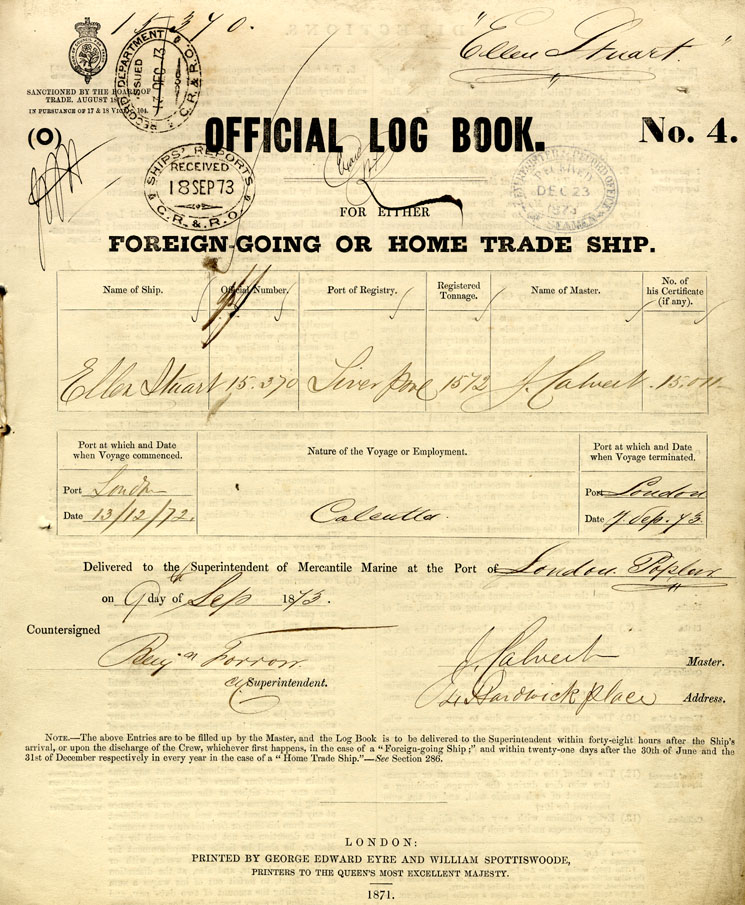 15,370.
"Ellen Stuart."
SANCTIONED BY THE BOARD OF
TRADE, AUGUST 18
IN PURSUANCE OF 17 & 18 VICT. 104.
RECORD DEPARTMENT
ISSUED
DEC 73
C.R. & R.O.
(O)
OFFICIAL LOG BOOK.
No. 4.
SHIPS' REPORTS
RECEIVED
18 SEP 73
C.R. & R.O.
RECEIVED
DEC 23
SEAMEN
FOR EITHER
FOREIGN-GOING OR HOME TRADE SHIP.
Name of Ship. Official Number. Port of Registry. Registered Tonnage. Name of Master. No. of his Certificate (if any).
Ellen Stuart 15.370 Liverpool 1572 J. Calvert 15.011
Port at which and Date when Voyage commenced.
Nature of the Voyage or Employment.
Port at which and Date when Voyage terminated.
Port London
Date 13/12/72.
Calcutta.
Port London
Date 7. Sep. 73.
Delivered to the Superintendent of Mercantile Marine at the Port of London. Poplar
on 9th day of Sep 1873.
Countersigned
Benjn Forrow
Superintendent.
J. Calvert Master.
Hardwick place Address.
NOTE.—The above Entries are to be filled up by the Master, and the Log Book is to be delivered to the Superintendent within forty-eight hours after the Ship's
arrival, or upon the discharge of the Crew, whichever first happens, in the case of a "Foreign-going Ship;" and within twenty-one days after the 30th of June and the
31st of December respectively in every year in the case of a "Home Trade Ship."—See Section 286.
LONDON:
PRINTED BY GEORGE EDWARD EYRE AND WILLIAM SPOTTISWOODE,
PRINTERS TO THE QUEEN'S MOST EXCELLENT MAJESTY.
1871.